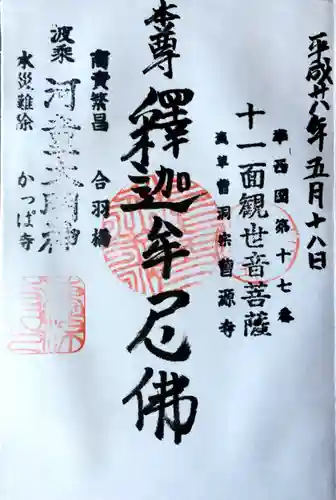 平成廿八年五月十八日
準西国第十七番
十一面観世音菩薩
浅草曹洞宗曹源寺
本尊
釋迦牟尼佛
商売繁昌 合羽橋
波乗 河童大明神
水災難除 かっぱ寺